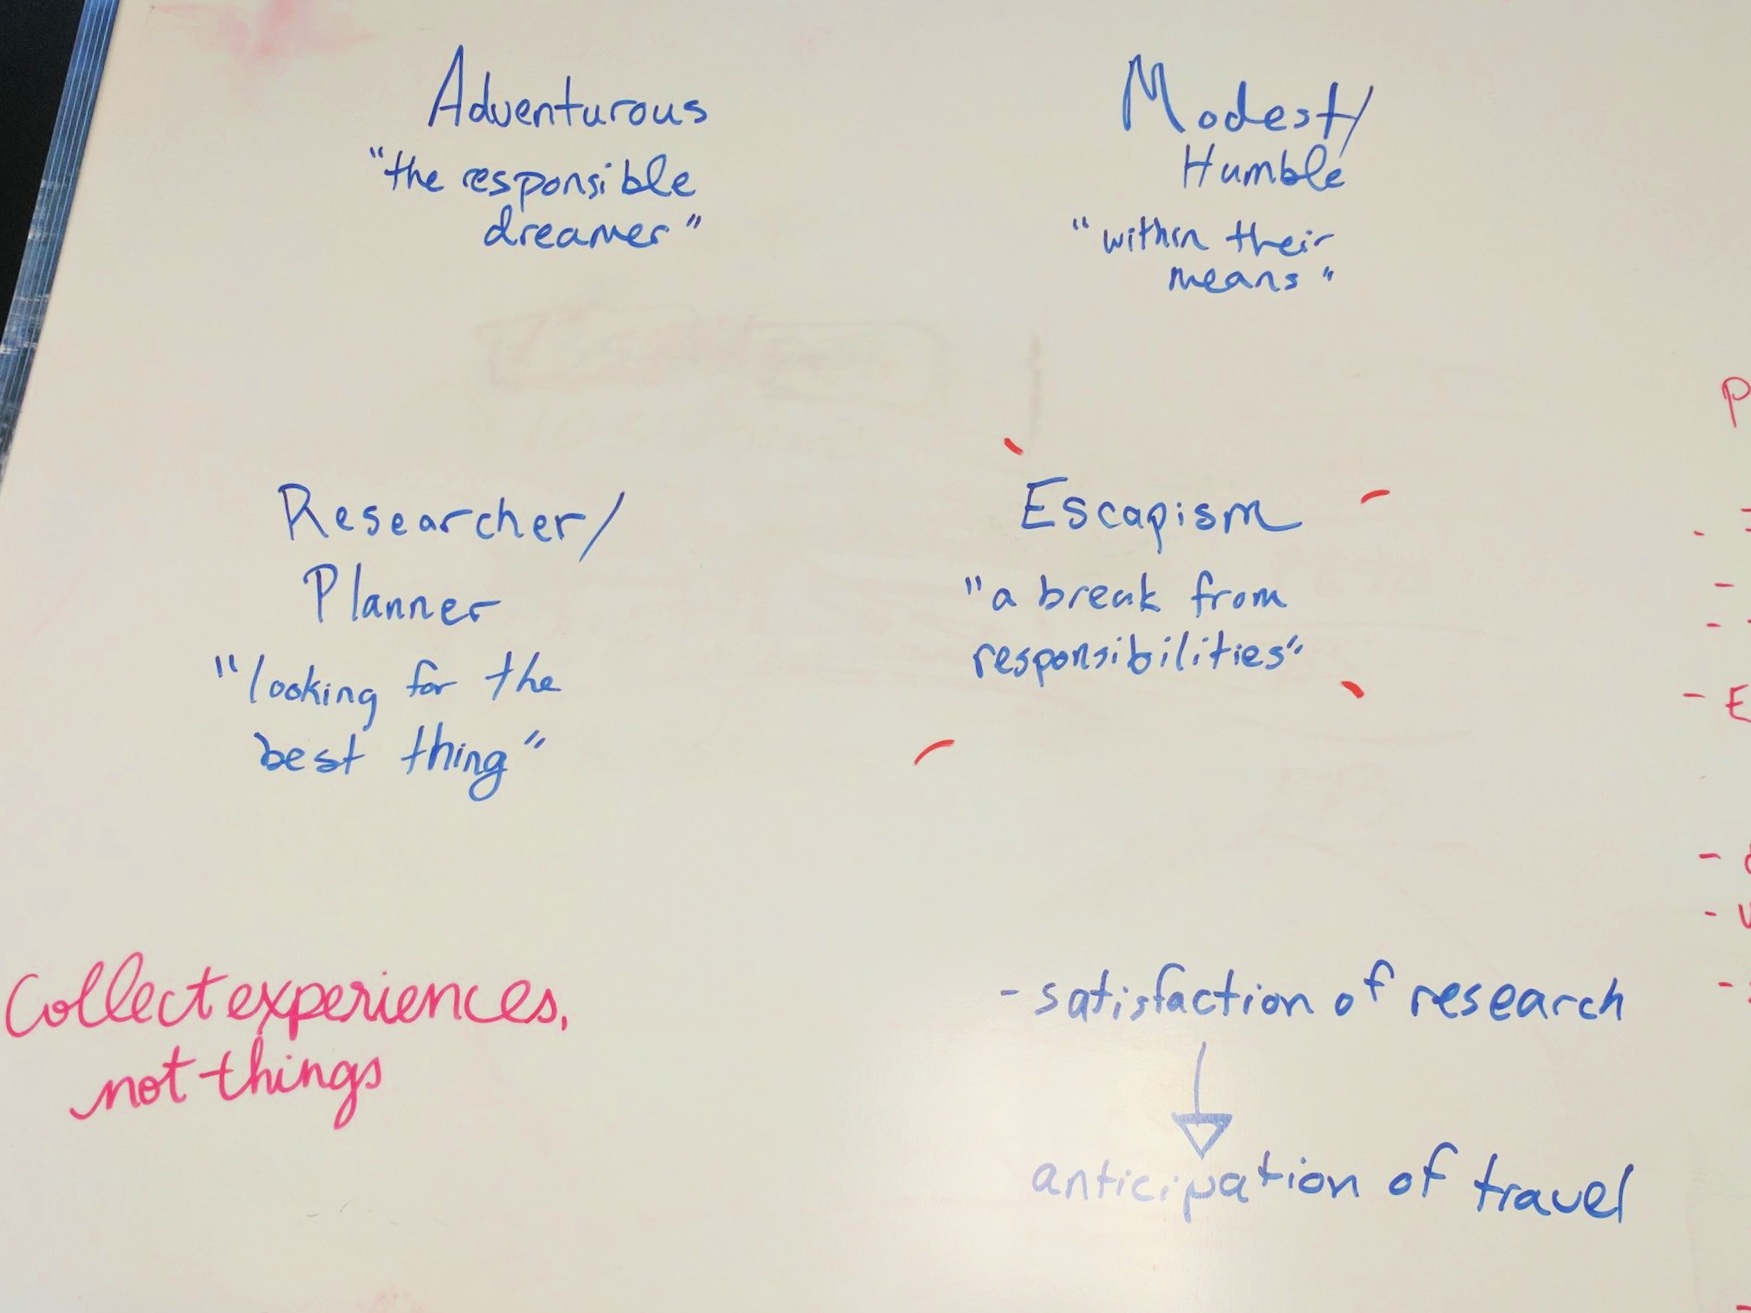 Adventurous
"the responsible
dreamer"
Modest/
Humble
"within their
means"
Researcher/
Planner
"looking for the
best thing"
Escapism
"a break from
responsibilities"
Collect experiences,
not things
- satisfaction of research
anticipation of travel